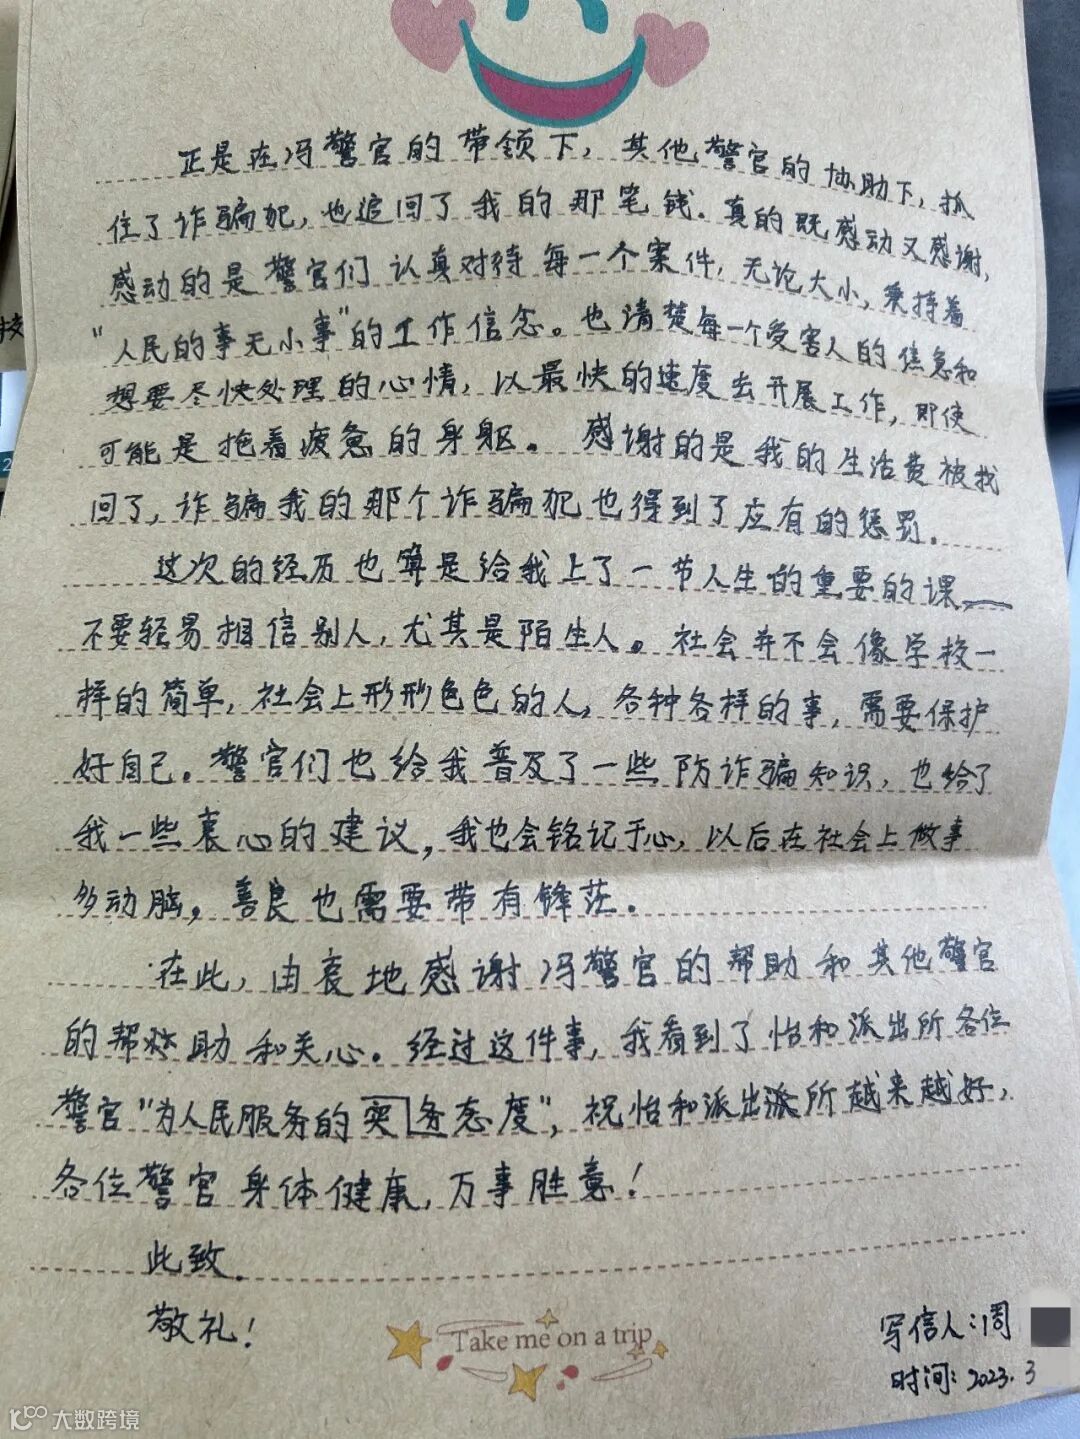 正是在冯警官的带领下，其他警官的协助下，抓
住了诈骗犯，也追回了我的那笔钱。真的既感动又感谢，
感动的是警官们认真对待每一个案件，无论大小，秉持着
“人民的事无小事”的工作信念。也清楚每一个受害人的焦急和
想要尽快处理的心情，以最快的速度去开展工作，即使
可能是拖着疲惫的身躯。感谢的是我的生活费被找
回了，诈骗我的那个诈骗犯也得到了应有的惩罚。
这次的经历也算是给我上了一节人生的重要的课，
不要轻易相信别人，尤其是陌生人。社会并不会像学校一
样的简单，社会上形形色色的人，各种各样的事，需要保护
好自己。警官们也给我普及了一些防诈骗知识，也给了
我一些衷心的建议，我也会铭记于心，以后在社会上做事
多动脑，善良也需要带有锋茫。
在此，由衷地感谢冯警官的帮助和其他警官
的帮助和关心。经过这件事，我看到了怡和派出所各位
警官“为人民服务的实务态度”，祝怡和派出所越来越好，
各位警官身体健康，万事胜意！
此致
敬礼！
Take me on a trip
写信人：周
时间：2023.3
大数跨境
2